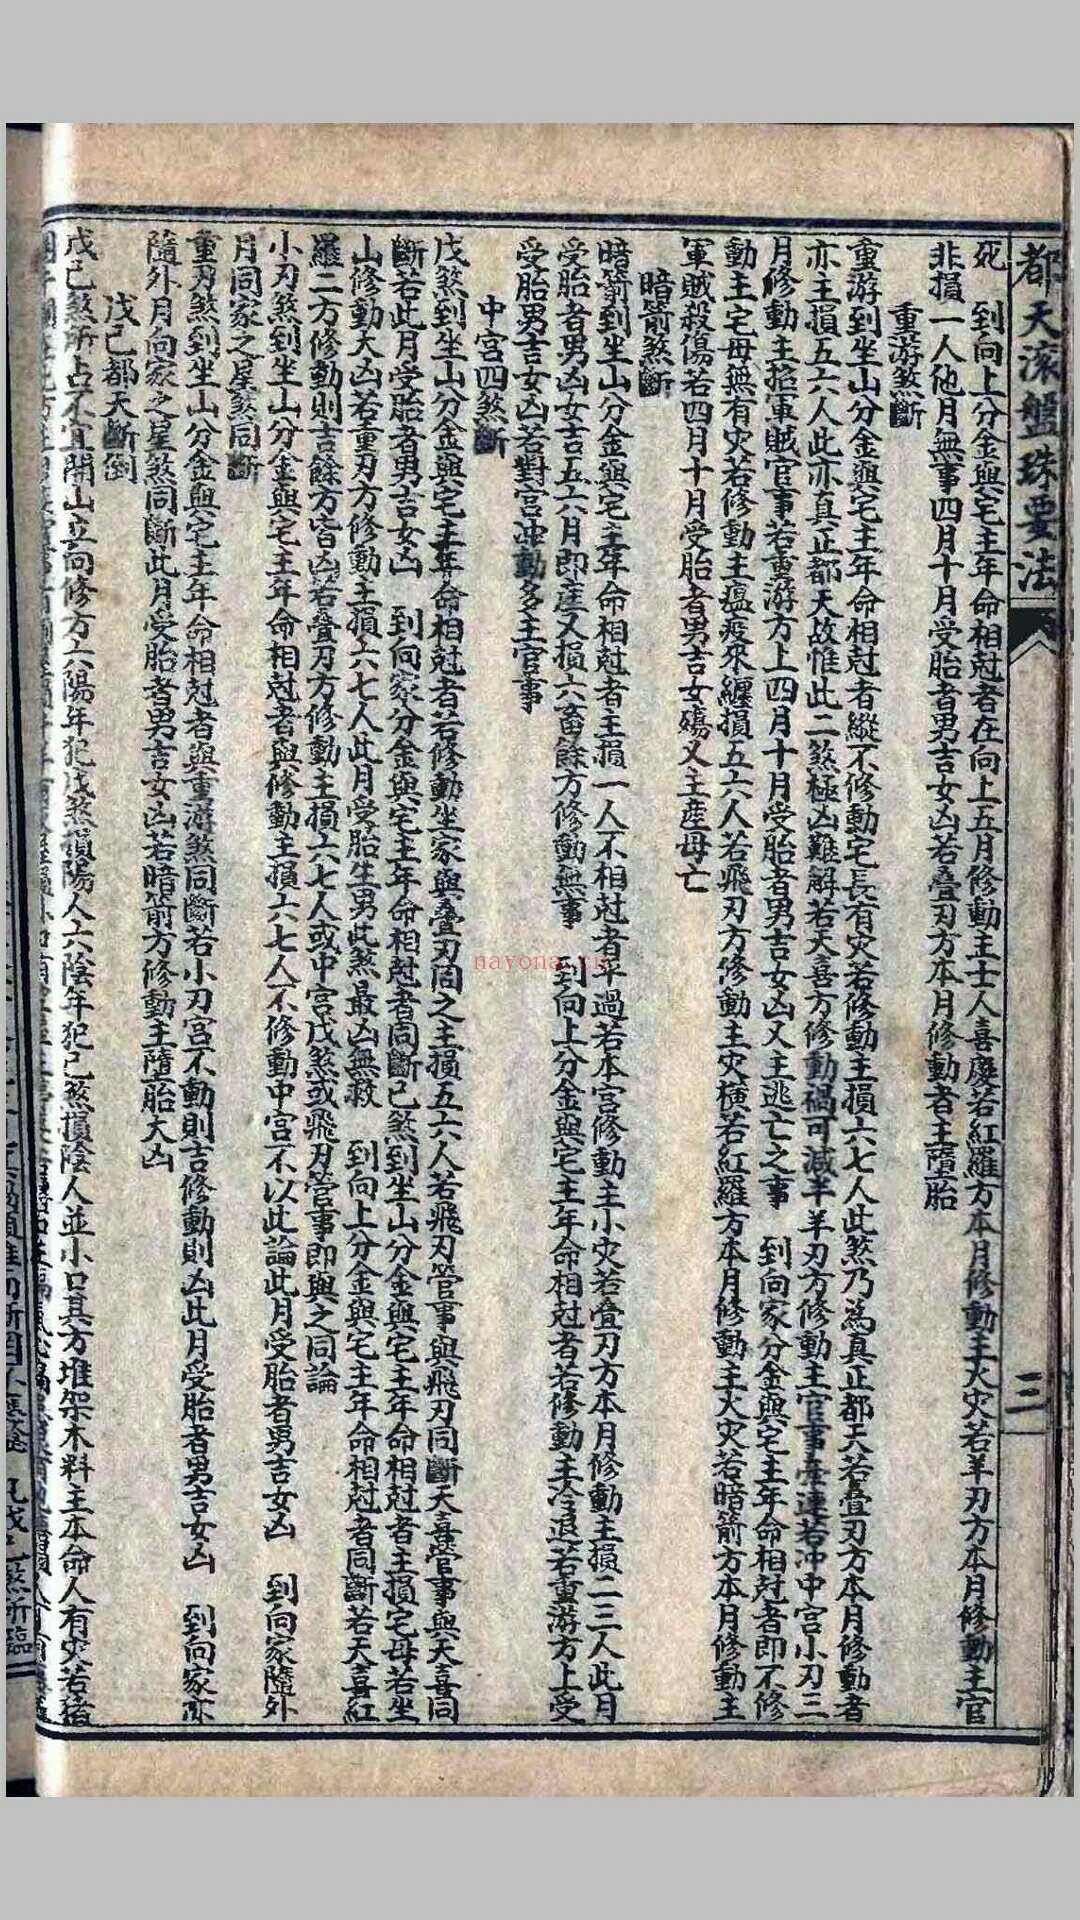 都天滚盤珠要法
三
死　到向上分金與宅主年命相尅者在向上五月修動主士人喜慶若紅羅方本月修動主火灾若羊刃方本月修動主官
非損一人他月無事四月十月受胎者男吉女凶若叠刃方本月修動者主墮胎
重游煞斷
重游到坐山分金與宅主年命相尅者縱不修動宅長有灾若修動主損六七人此煞乃為真正都天若叠刃方本月修動者
亦主損五六人此亦真正都天故惟此二煞極凶難解若天喜方修動禍可減半羊刃方修動主官事牽連若冲中宮小刃三
月修動主招軍賊官事若重游方上四月十月受胎者男吉女凶又主逃亡之事　到向家分金與宅主年命相尅者即不修
動主宅母無有灾若修動主瘟疫來纏損五六人若飛刃方修動主灾橫若紅羅方本月修動主火灾若暗箭方本月修動主
軍賊殺傷若四月十月受胎者男吉女殤又主産母亡
暗箭煞斷
暗箭到坐山分金與宅主年命相尅者主損一人不相尅者平過若本宮修動主小灾若叠刃方本月修動主損二三人此月
受胎者男凶女吉五六月即産又損六畜餘方修動無事　到向上分金與宅主年命相尅者若修動主冷退若重游方上受
受胎男吉女凶若對宮冲動多主官事
中宮四煞斷
戊煞到坐山分金與宅主年命相尅者若修動坐家與叠刃同之主損五六人若飛刃管事與飛刃同斷天喜管事與天喜同
斷若此月受胎者男吉女凶　到向家分金與宅主年命相尅者同斷已煞到坐山分金與宅主年命相尅者主損宅母若坐
山修動大凶若重刃方修動主損六七人此月受胎生男此煞最凶無救　到向上分金與宅主年命相尅者同斷若天喜紅
羅二方修動則吉餘方皆凶若叠刃方修動主損六七人或中宮戊煞或飛刃管事即與之同論
小刃煞到坐山分金與宅主年命相尅者與修動主損六七人不修動中宮不以此論此月受胎者男吉女凶　到向家隨外
月同家之星煞同斷
重刃煞到坐山分金與宅主年命相尅者與重游煞同斷若小刃宮不動則吉修動則凶此月受胎者男吉女凶　到向家亦
隨外月向家之星煞同斷此月受胎者男吉女凶若暗箭方修動主墮胎大凶
戊已都天斷例
戊已煞所占不宜開山立向修方六陽年犯戊煞損陽人六陰年犯已煞損陰人並小口其方堆架木料主本命人有灾若豬